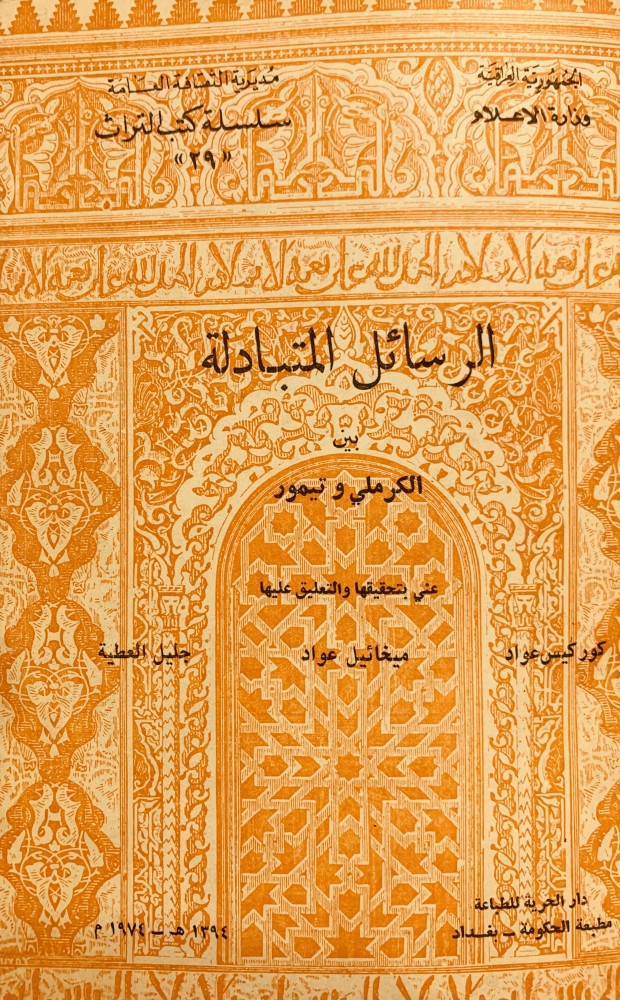 الجمهورية العراقية
وزارة الاعلام
مديرية الثقافة العامة
سلسلة كتب التراث
«٢٩»
الرسائل المتبادلة
بين
الكرملي و تيمور
عني بتحقيقها والتعليق عليها
كوركيس عواد
ميخائيل عواد
جليل العطية
دار الحرية للطباعة
مطبعة الحكومة - بغداد
١٣٩٤ هـ - ١٩٧٤ م